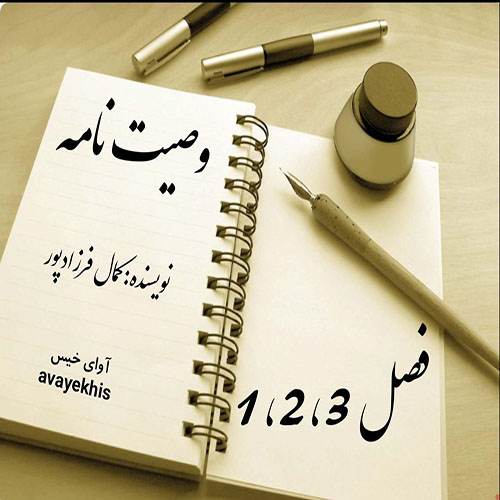 وصیت نامه
نویسنده: کمال فرزادپور
آوای خیس
avayekhis
فصل 1،2،3